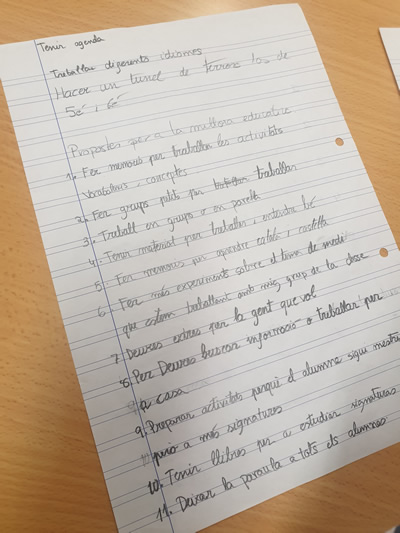 Tenir agenda
Treballar diferents idiomes
Hacer un túnel de terrores los de
5é i 6é
Propostes per a la millora educativa
1. Fer murals per treballar les activitats
vocabulari i conceptes
2. Fer grups petits per treballar
3. Treball en grups o en parella
4. Tenir material per treballar i entendre bé
5. Fer murals per aprendre català i castellà
6. Fer més experiments sobre el tema de medi
que estem treballant amb mig grup de la clase
7. Deures extres per la gent que vol
8. Per Deures buscar informació o treballar per
a casa
9. Preparar activitats perquè el alumne sigui mestre
però a més signatures
10. Tenir llibres per a estudiar signaturas
11. Deixar la paraula a tots els alumnes